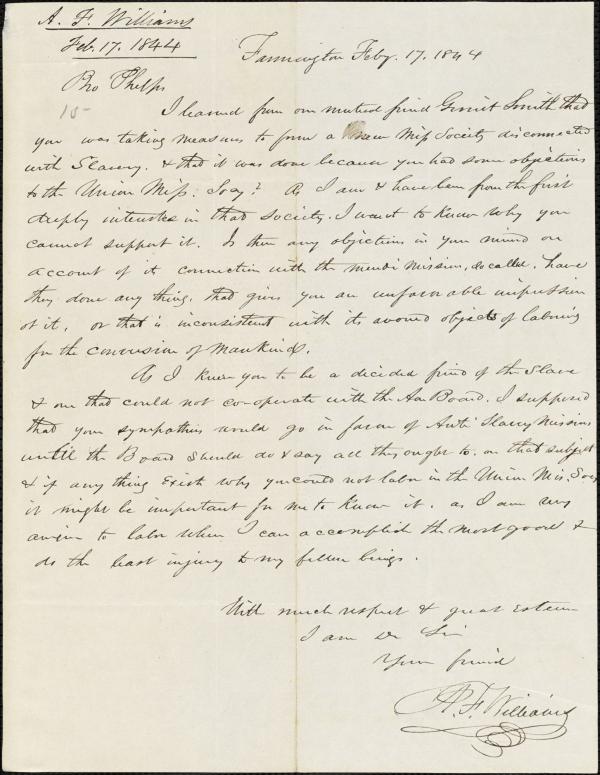 A. F. Williams
Feb. 17. 1844
Farmington Feby. 17. 1844
Bro Phelps
15-
I learned from our mutual friend Gerrit Smith that
you was taking measures to form a new Miss Society disconnected
with Slavery. & that it was done because you had some objections
to the Union Miss. Socy? As I am & have been from the first
deeply interested in that Society. I want to know why you
cannot support it. Is there any objections in your mind on
account of its connection with the mendi mission, so called. have
they done any thing. that gives you an unfavorable impression
of it, or that is inconsistent with its avowed objects of laboring
for the conversion of Mankind.
As I know you to be a decided friend of the Slave
& one that could not co-operate with the Am Board. I supposed
that your sympathies would go in favor of Anti Slavery Missions
untill the Board should do & say all they ought to. on that subject
& if any thing Exists why you could not labor in the Union Mis. Socy
it might be important for me to know it. as I am very
anxious to labor where I can accomplish the most good &
do the least injury to my fellow beings.
With much respect & great Esteem
I am Dr Sir
Your friend
A. F. Williams